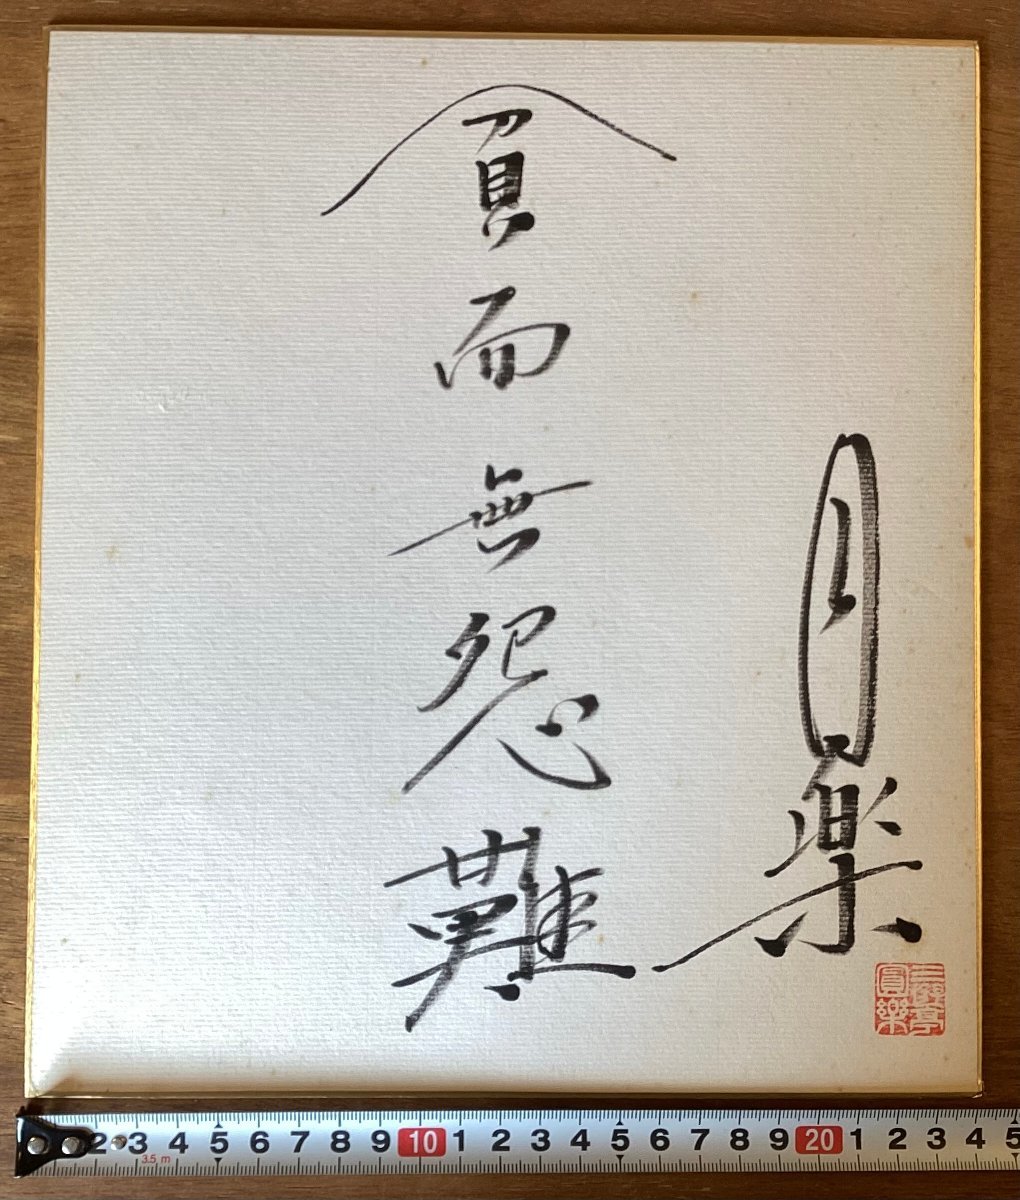 貧而無怨難
円楽
三遊亭
圓樂
2 3 4 5 6 7 8 9 10 1 2 3 4 5 6 7 8 9 20 1 2 3 4 5
3.5 m